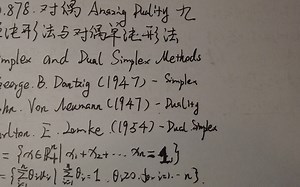 .878. 对偶 Amazing Duality 九
纯形法与对偶单纯形法
mplex and Dual Simplex Methods
George. B. Dantzig (1947) - Simplex
hn. Von Neumann (1947) - Duality
arlton. E. Lemke. (1954) - Dual Simplex
= {x∈ℝⁿ₊ | x₁+x₂+... xₙ = 1}
= {Σθᵢuᵢ | Σθᵢ = 1. θᵢ≥0. i=1...n}